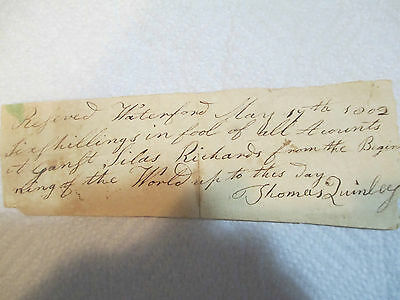 Reseived Waterford May 19th 1802
Six shillings in fool of all Acounts
a ganst Silas Richards from the Begin
ning of the World up to this day
Thomas Quinbey